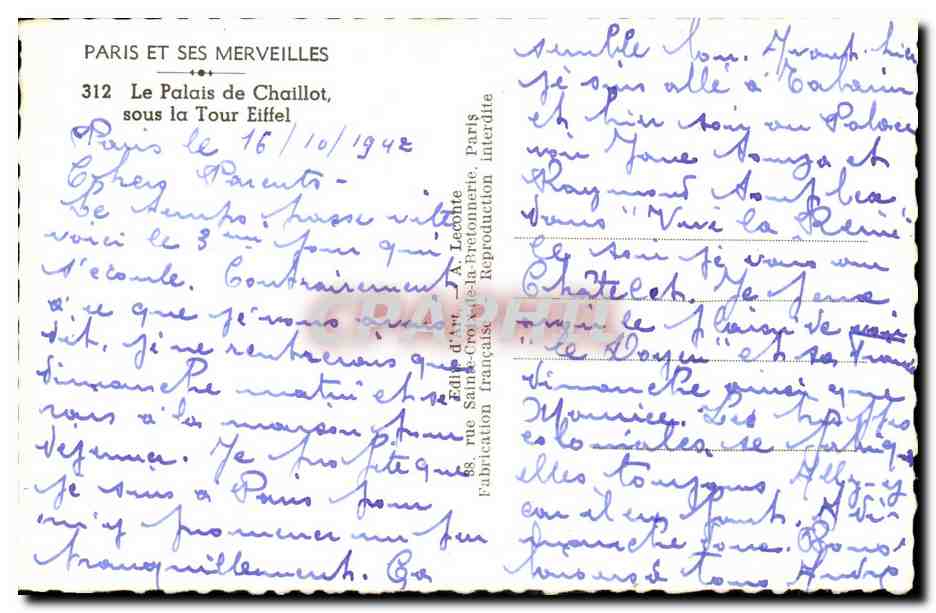 PARIS ET SES MERVEILLES
312 Le Palais de Chaillot,
sous la Tour Eiffel
Paris le 16/10/1942
Chers Parents -
Le temps passe vite
voici le 3ème jour qui
s'écoule. Contrairement
à ce que je vous avais
dit, je ne rentrerais que
dimanche matin et se
rais à la maison pour
déjeuner. Je profite que
je suis à Paris pour
m'y promener un peu
tranquillement. Ça
Edit. d'Art. — A. Leconte
38, rue Sainte-Croix-de-la-Bretonnerie, Paris
Fabrication française Reproduction interdite
CPARHTI
semble bon. Avant hier
je suis allé à Tabarin
et hier soir au Palace
voir Jane Sourza et
Raymond Souplex
dans "Vive la Reine"
Ce soir je vais au
Châtelet. Je pense
avoir le plaisir de voir
"le Doyen" et sa
dimanche ainsi que
Maurice. Les troupes
coloniales se
elles toujours Allez-y
car il en faut. A di-
manche donc. Bons
baisers à tous André